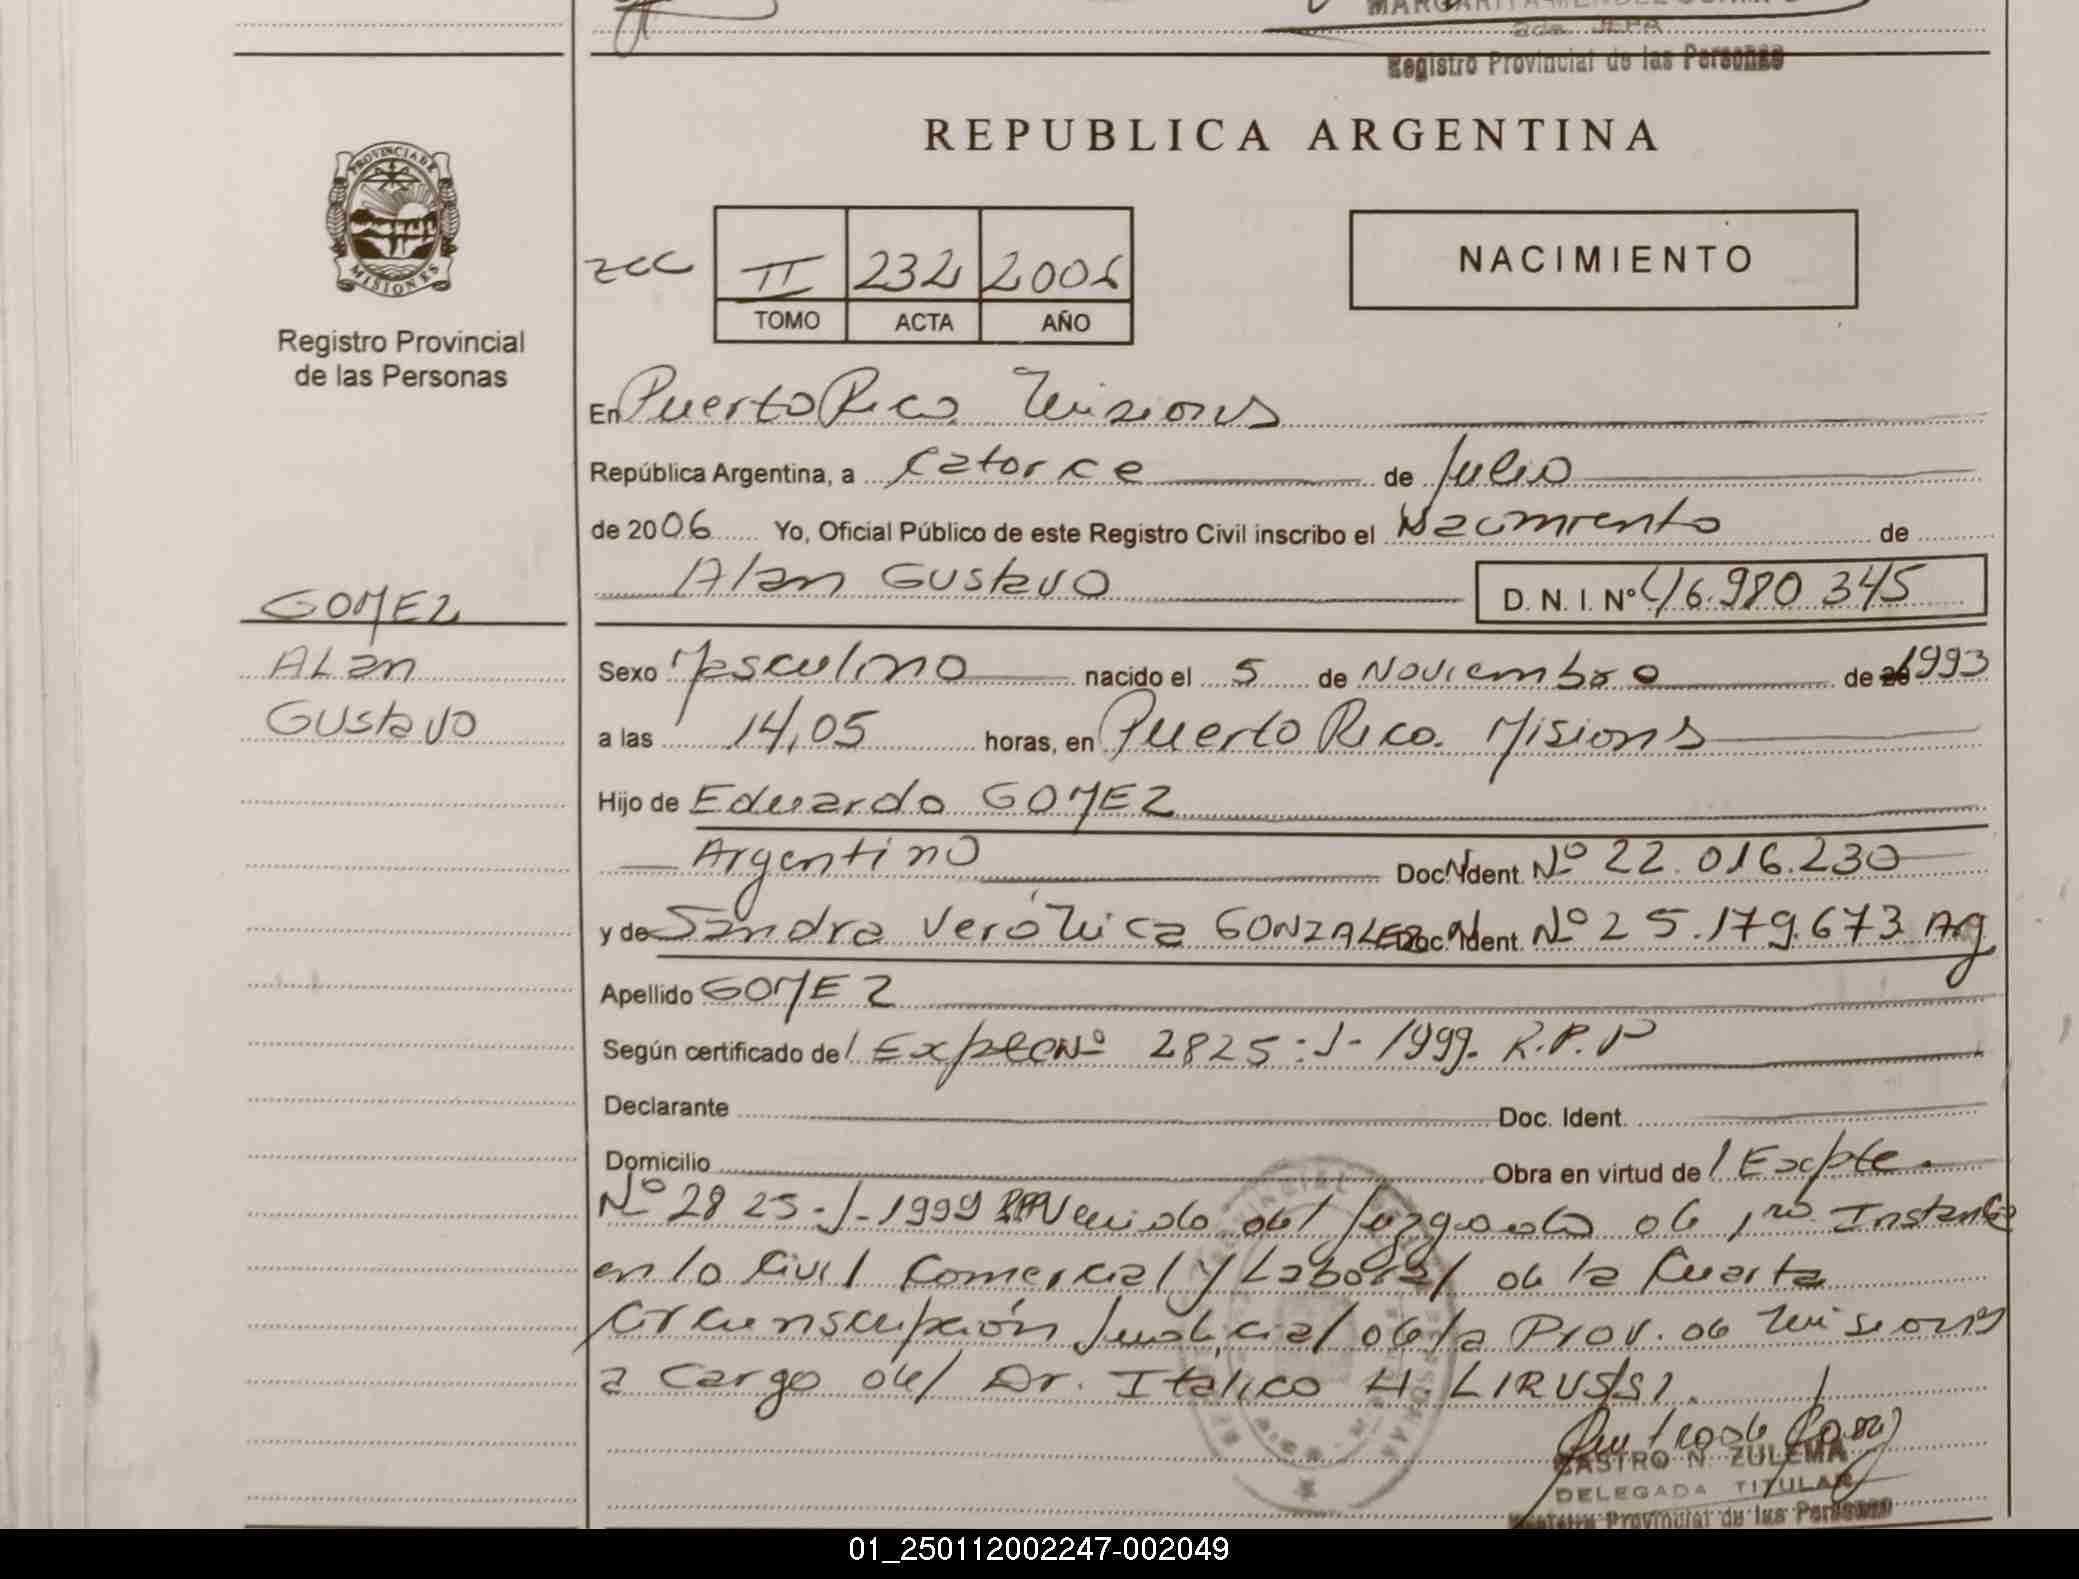 2da. JEFA
Registro Provincial de las Personas
REPUBLICA ARGENTINA
PROVINCIA DE
MISIONES
Registro Provincial
de las Personas
II 232 2006
TOMO ACTA AÑO
NACIMIENTO
En Puerto Rico Misiones
República Argentina, a Catorce de Julio
de 2006 Yo, Oficial Público de este Registro Civil inscribo el Nacimiento de
Alan Gustavo D. N. I. Nº 46.980 345
GOMEZ
ALan
Gustavo
Sexo Masculino nacido el 5 de Noviembre de 20 1993
a las 14,05 horas, en Puerto Rico. Misiones
Hijo de Eduardo GOMEZ
Argentino Doc. Ident. Nº 22.016.230
y de Sandra Verónica GONZALEZ Doc. Ident. Nº 25.179.673 Arg
Apellido GOMEZ
Según certificado del Expte Nº 2825-J-1999. R.P.P
Declarante Doc. Ident.
Domicilio Obra en virtud del Expte.
Nº 2825-J-1999 del Juzgado de 1ra Instancia
en lo Civil Comercial y Laboral de la Cuarta
Circunscripción Judicial de la Prov. de Misiones
a Cargo del Dr. Italico H. LIRUSSI.
CASTRO N. ZULEMA
DELEGADA TITULAR
Registro Provincial de las Personas
01_250112002247-002049